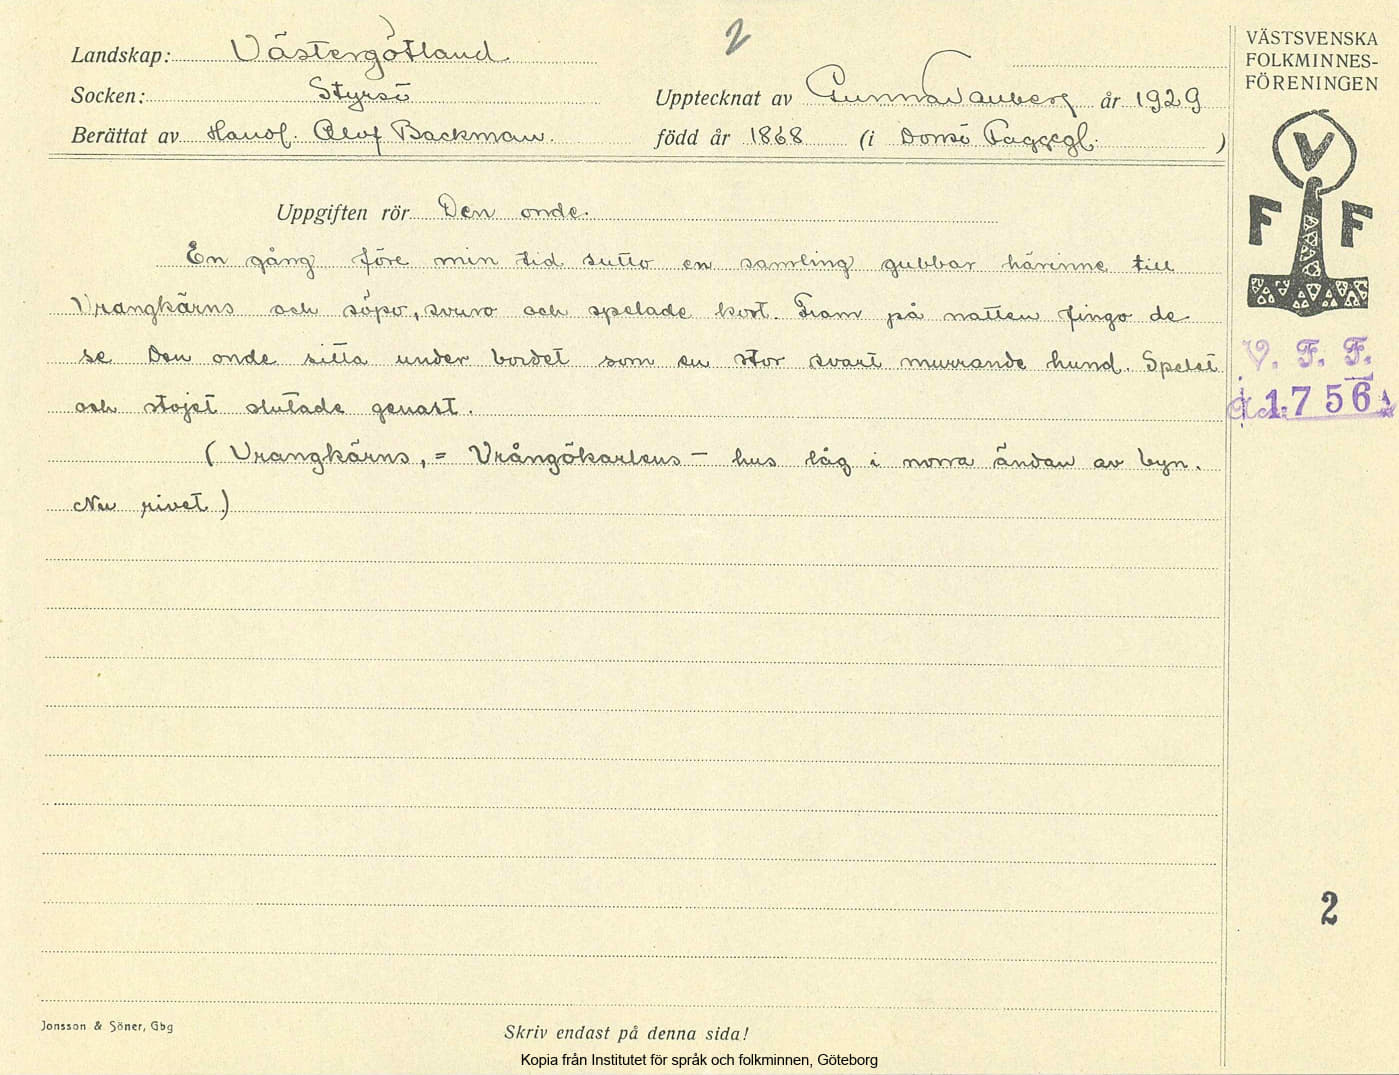 2
Landskap: Västergötland
Socken: Styrsö
Upptecknat av Gunnar Tauberg år 1929
Berättat av Handl. Olof Backman.
född år 1868 (i Donsö Faggegl. )
VÄSTSVENSKA
FOLKMINNES-
FÖRENINGEN
V
F F
V. F. F.
1756
Uppgiften rör Den onde.
En gång före min tid sutto en samling gubbar härinne till
Vrangkärns och söpo, svuro och spelade kort. Fram på natten fingo de
se Den onde sitta under bordet som en stor svart murrande hund. Spelet
och stojet slutade genast.
(Vrangkärns, = Vrångökarlens – hus låg i norra ändan av byn.
Nu rivet.)
2
Jonsson & Söner, Gbg
Skriv endast på denna sida!
Kopia från Institutet för språk och folkminnen, Göteborg